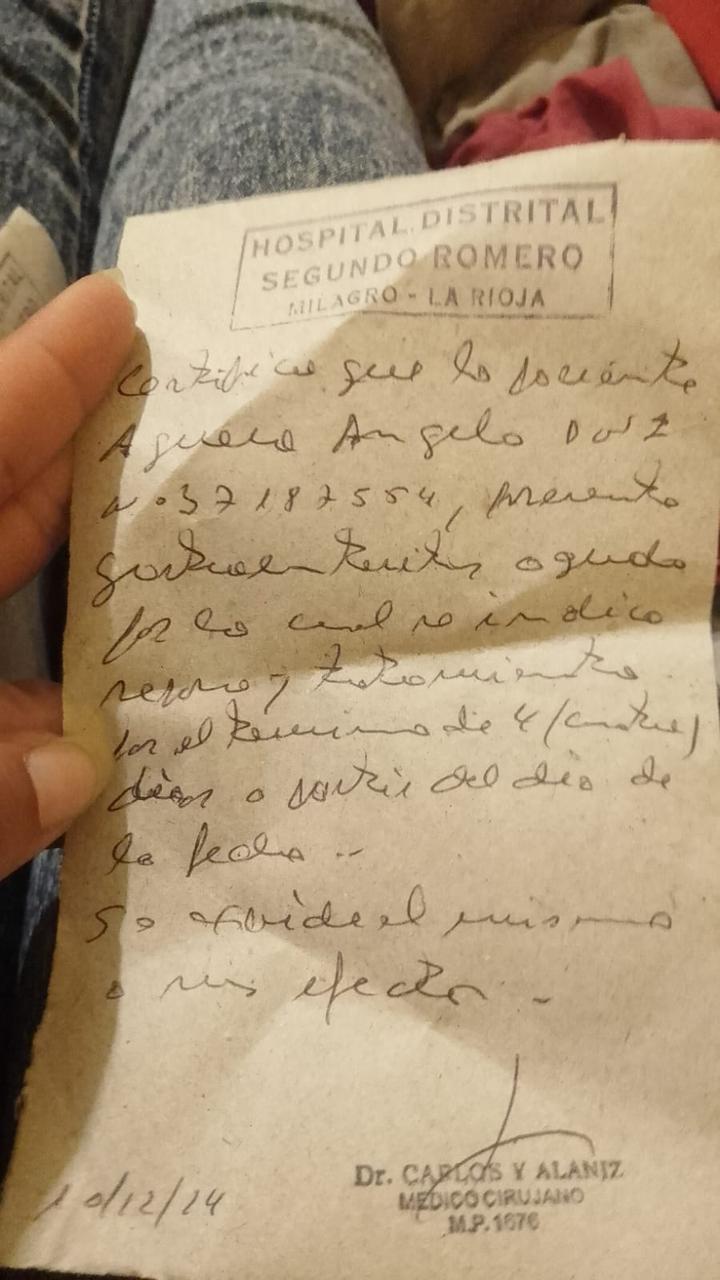 HOSPITAL DISTRITAL
SEGUNDO ROMERO
MILAGRO - LA RIOJA
Certifico que la paciente
Aguero Angela DNI
Nº 37187554, presenta
gastroenteritis aguda
por lo cual se indica
reposo y tratamiento
por el termino de 4 (cuatro)
días a partir del día de
la fecha --
Se expide el mismo
a sus efectos -
Dr. CARLOS Y ALANIZ
MEDICO CIRUJANO
M.P. 1676
10/12/24